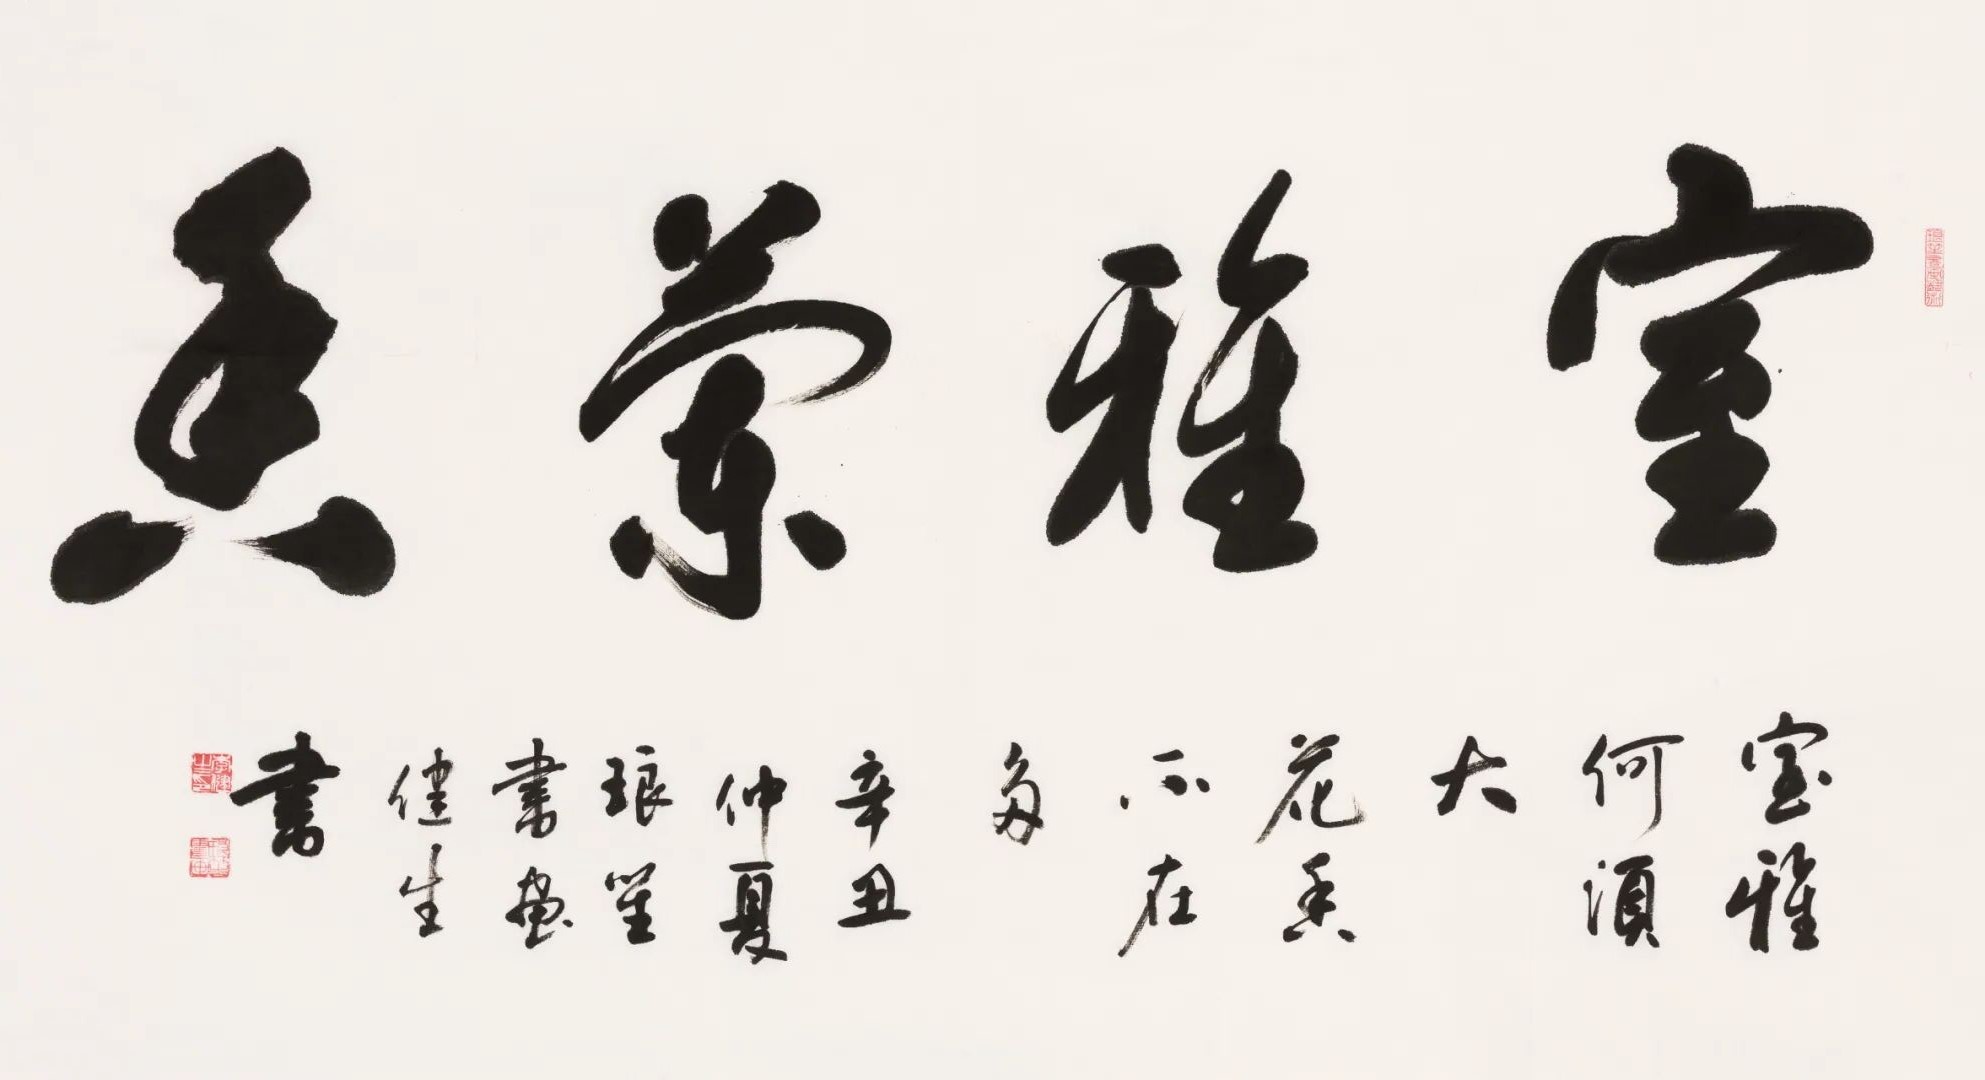 室雅蘭香
室雅
何須
大
花香
不在
多
辛丑
仲夏
琅
書畫
健生
書